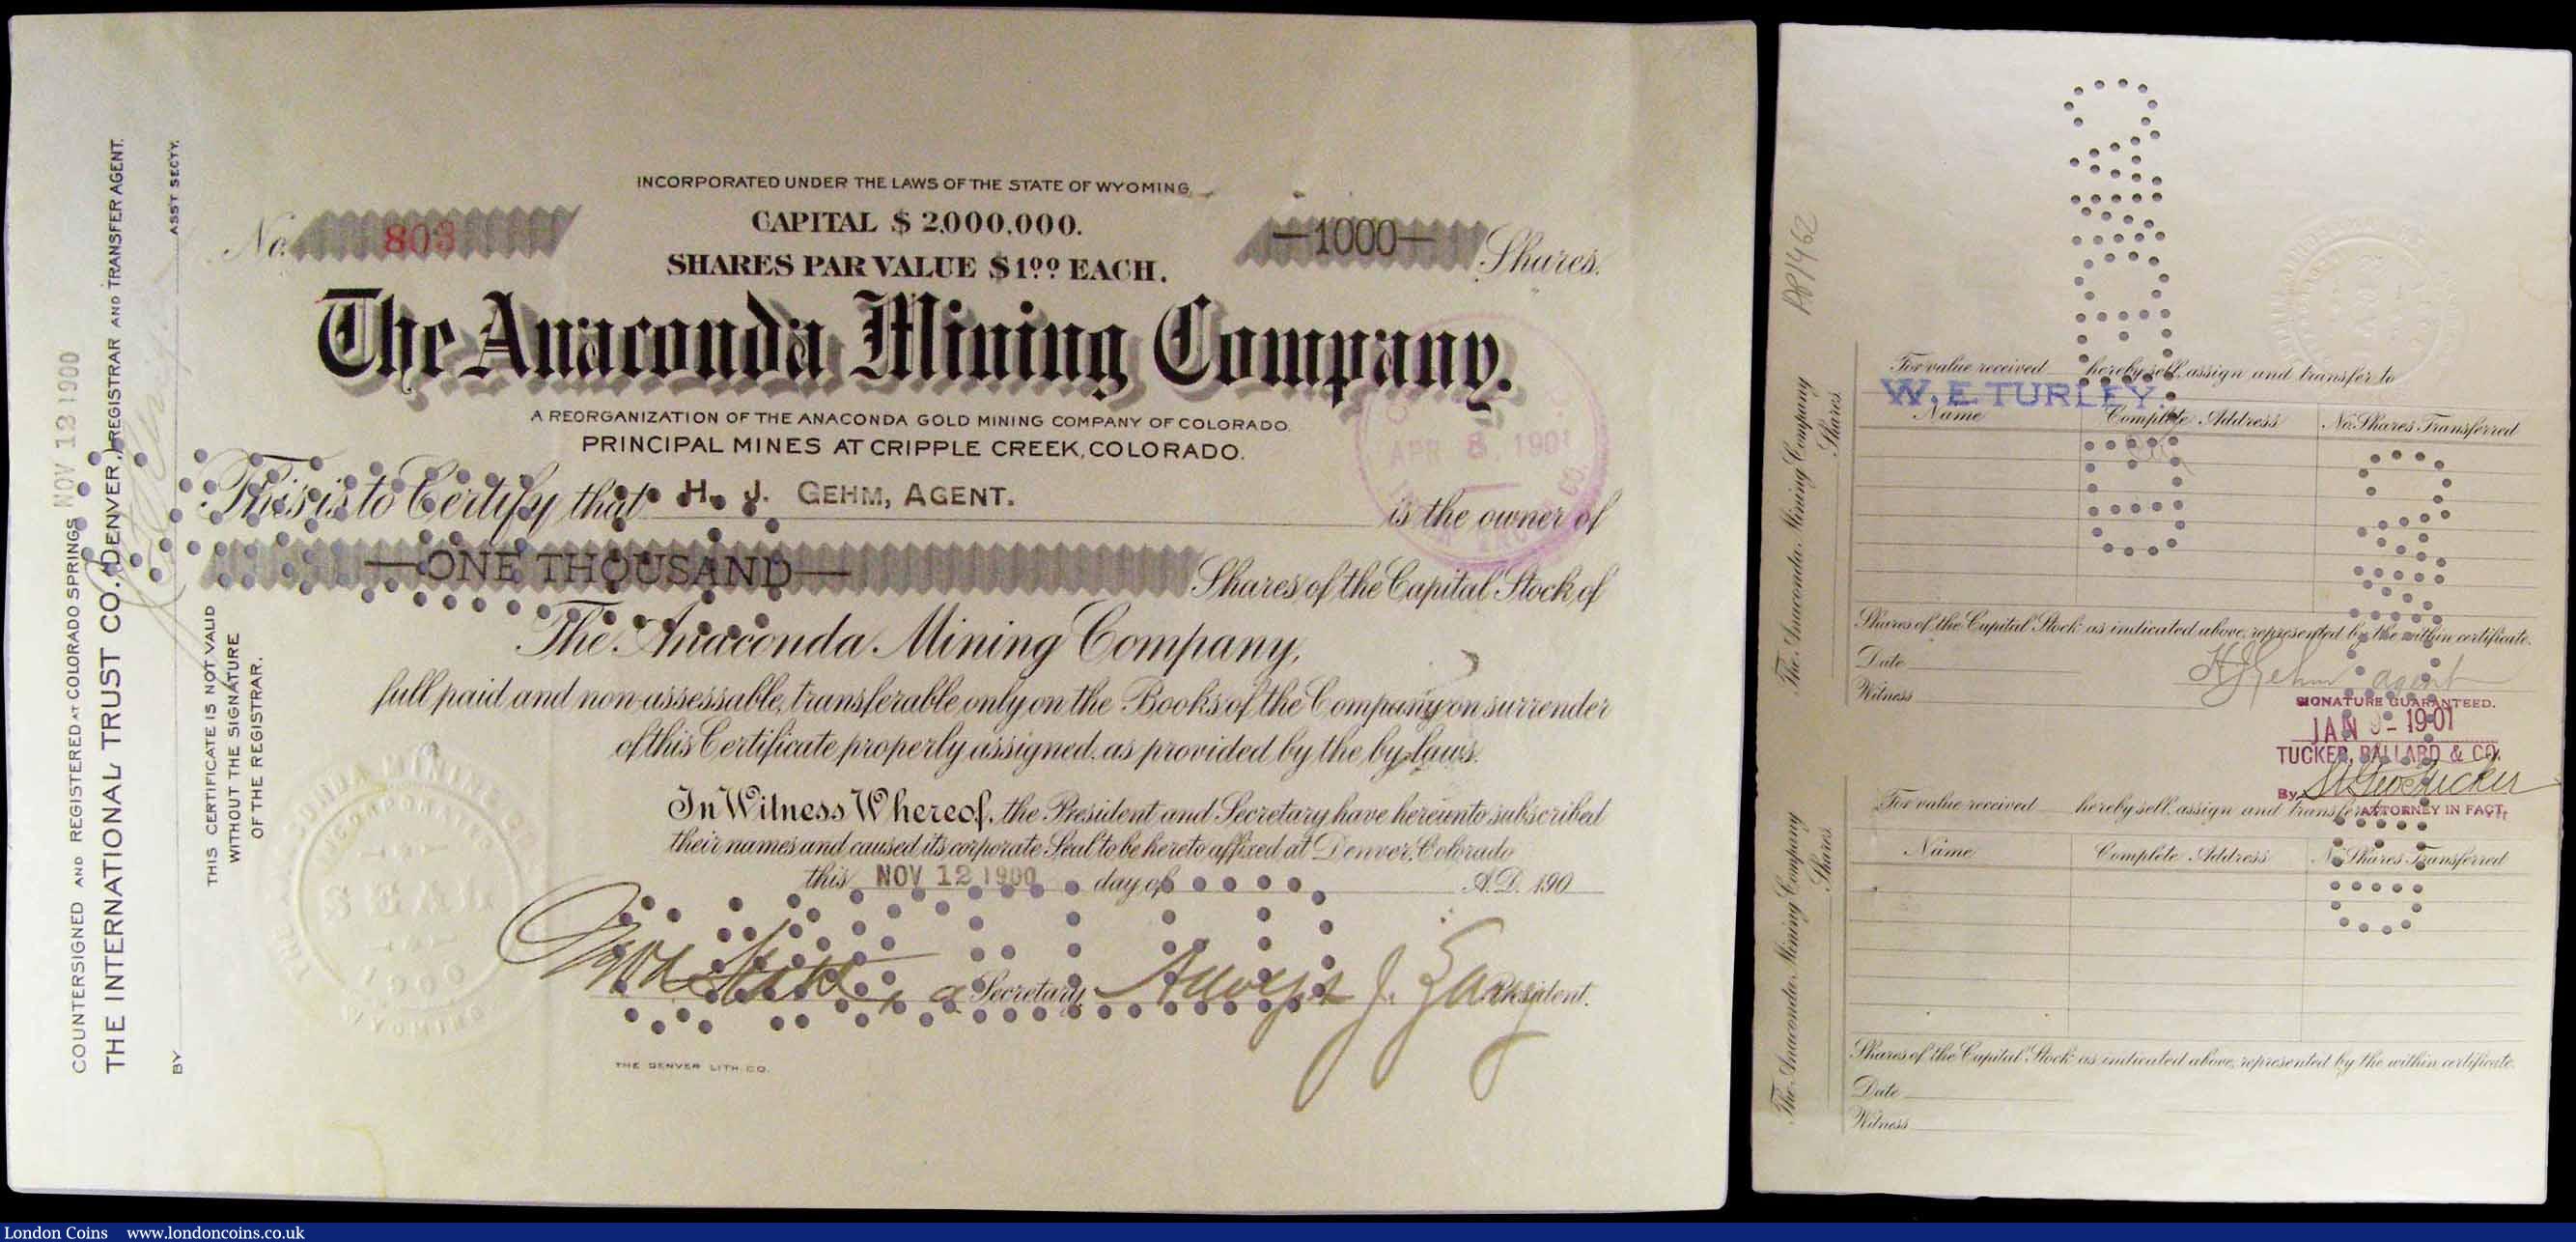 INCORPORATED UNDER THE LAWS OF THE STATE OF WYOMING
CAPITAL $ 2,000,000.
SHARES PAR VALUE $1.00 EACH.
No. 803
—1000— Shares.
The Anaconda Mining Company.
A REORGANIZATION OF THE ANACONDA GOLD MINING COMPANY OF COLORADO.
PRINCIPAL MINES AT CRIPPLE CREEK, COLORADO.
APR 8, 1901
This is to Certify that H. J. GEHM, AGENT. is the owner of
—ONE THOUSAND— Shares of the Capital Stock of
The Anaconda Mining Company,
full paid and non-assessable, transferable only on the Books of the Company on surrender
of this Certificate properly assigned, as provided by the by-laws.
In Witness Whereof, the President and Secretary have hereunto subscribed
their names and caused its corporate Seal to be hereto affixed at Denver, Colorado
this NOV 12 1900 day of A.D. 190
Secretary President.
THE DENVER LITH. CO.
SEAL
1900
COUNTERSIGNED AND REGISTERED AT COLORADO SPRINGS NOV 13 1900
THE INTERNATIONAL TRUST CO. (DENVER) REGISTRAR AND TRANSFER AGENT.
BY ASST SECTY.
THIS CERTIFICATE IS NOT VALID
WITHOUT THE SIGNATURE
OF THE REGISTRAR.
CANCELLED
For value received hereby sell, assign and transfer to
W. E. TURLEY.
Name Complete Address No. Shares Transferred
The Anaconda Mining Company
Shares
Shares of the Capital Stock as indicated above, represented by the within certificate.
Date
Witness
H J Gehm agent
SIGNATURE GUARANTEED.
JAN 9 - 1901
TUCKER, BALLARD & CO.
By Tucker
ATTORNEY IN FACT.
For value received hereby sell, assign and transfer
Name Complete Address No. Shares Transferred
The Anaconda Mining Company
Shares
Shares of the Capital Stock as indicated above, represented by the within certificate.
Date
Witness
London Coins www.londoncoins.co.uk